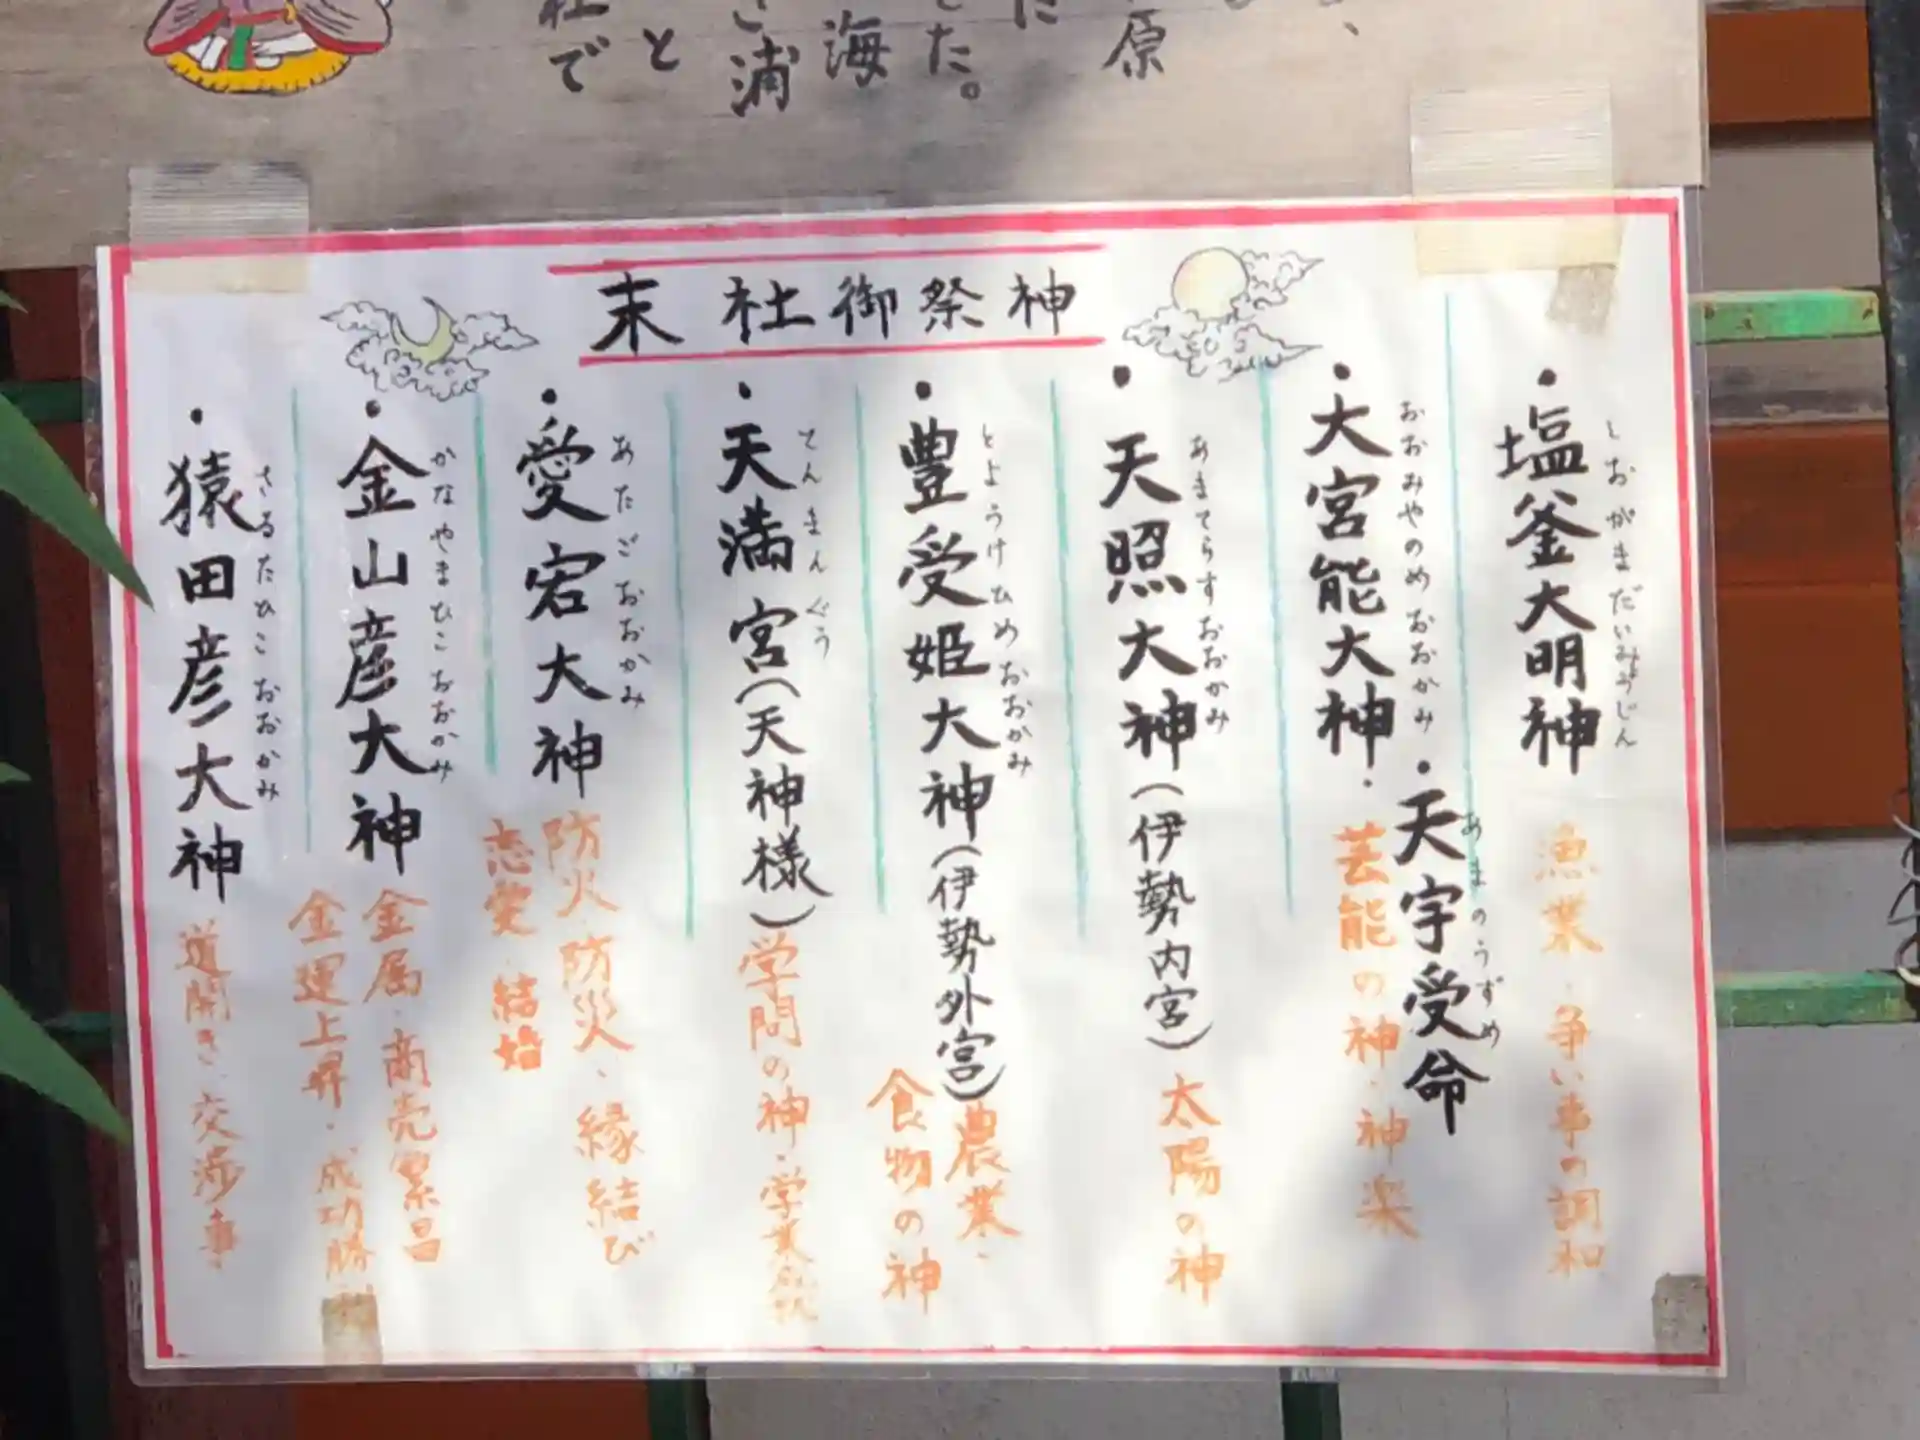 末社御祭神
・塩釜大明神
しおがまだいみょうじん
漁業・争い事の調和
・大宮能大神・
おおみやのめおおかみ
・天宇受命
あまのうずめ
芸能の神・神楽
・天照大神(伊勢内宮)
あまてらすおおかみ
太陽の神
・豊受姫大神(伊勢外宮)
とようけひめおおかみ
農業・
食物の神
・天満宮(天神様)
てんまんぐう
学問の神・学業成就
・愛宕大神
あたごおおかみ
防火・防災・縁結び
恋愛・結婚
・金山彦大神
かなやまひこおおかみ
金属・商売繁昌
金運上昇・成功勝利
・猿田彦大神
さるたひこおおかみ
道開き・交渉事